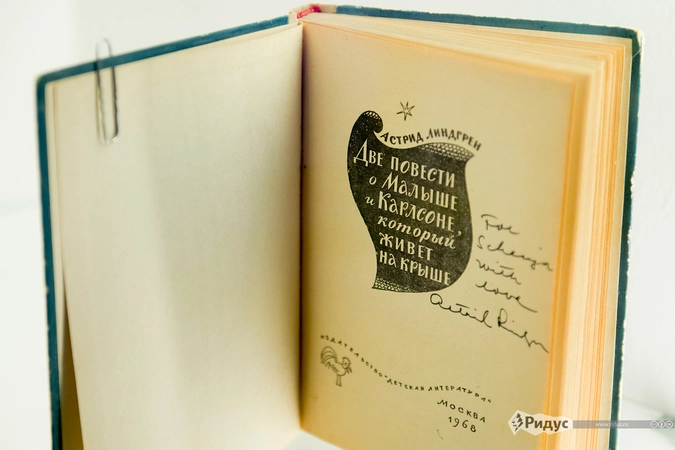 АСТРИД ЛИНДГРЕН
ДВЕ ПОВЕСТИ
о МАЛЫШЕ
и КАРЛСОНЕ,
который
ЖИВЕТ
НА КРЫШЕ
For
Schenja
with
love
Astrid Lindgren
ИЗДАТЕЛЬСТВО "ДЕТСКАЯ ЛИТЕРАТУРА"
МОСКВА
1968
Ридус